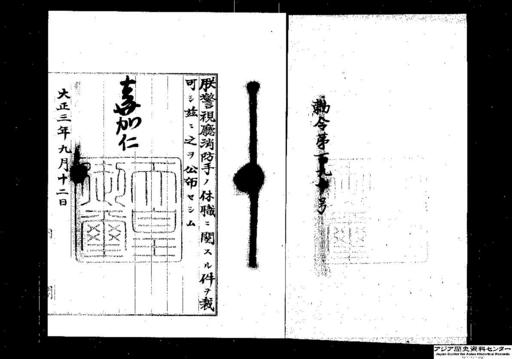 勅令第百九十号
朕警視廳消防手ノ休職ニ關スル件ヲ裁
可シ茲ニ之ヲ公布セシム
嘉仁
大正三年九月十二日
アジア歴史資料センター
Japan Center for Asian Historical Records